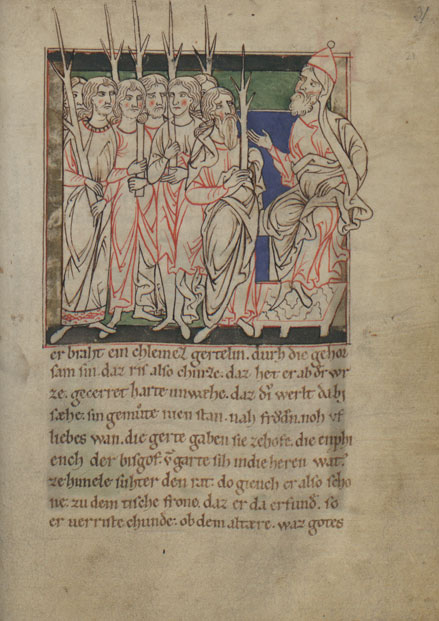 er braht ein chleinez gertelin. durh die gehor
sam sin. daz ris also churze. daz het er ab dr wr
ze. gecerret harte unwæhe. daz di werlt da bi
sæhe. sin gemůte nien stan. nah frŏdn. noh uf
liebes wan. die gerte gaben sie ze hofe. die enphi
ench der bisgof. garte sih in die heren wat.
ze himele sůhter den rat. do giench er also scho
ne. zu dem tische frone. daz er da erfund. so
er verriste chunde. ob dem altære. waz gotes